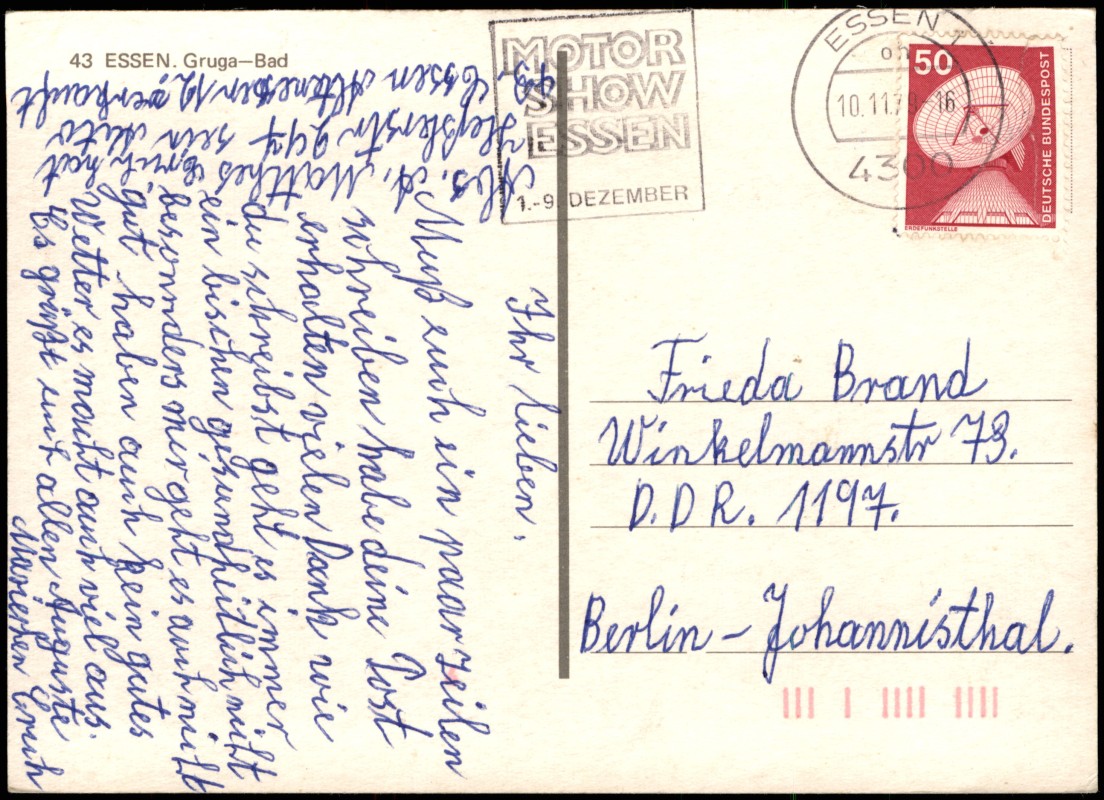 43 ESSEN. Gruga—Bad
MOTOR
SHOW
ESSEN
1.-9. DEZEMBER
ESSEN 1
10.11.79 - 16
4300
50
DEUTSCHE BUNDESPOST
ERDEFUNKSTELLE
Ihr lieben.
Muß euch ein paar zeilen
schreiben habe deine Post
erhalten vielen Dank wie
du schreibst geht es immer
ein bischen gesundheitlich nicht
besonnders mir geht es auch nicht
gut haben auch kein gutes
Wetter es macht auch viel aus.
Es grüßt euch allen Auguste
Mariechen Erich
Abs. A. Matthes
Heßlerstr 247
43. Essen Altenessen 12,
Erich hat
sein Auto
verkauft
Frieda Brand
Winkelmannstr 73.
D.D R. 1197.
Berlin - Johannisthal.